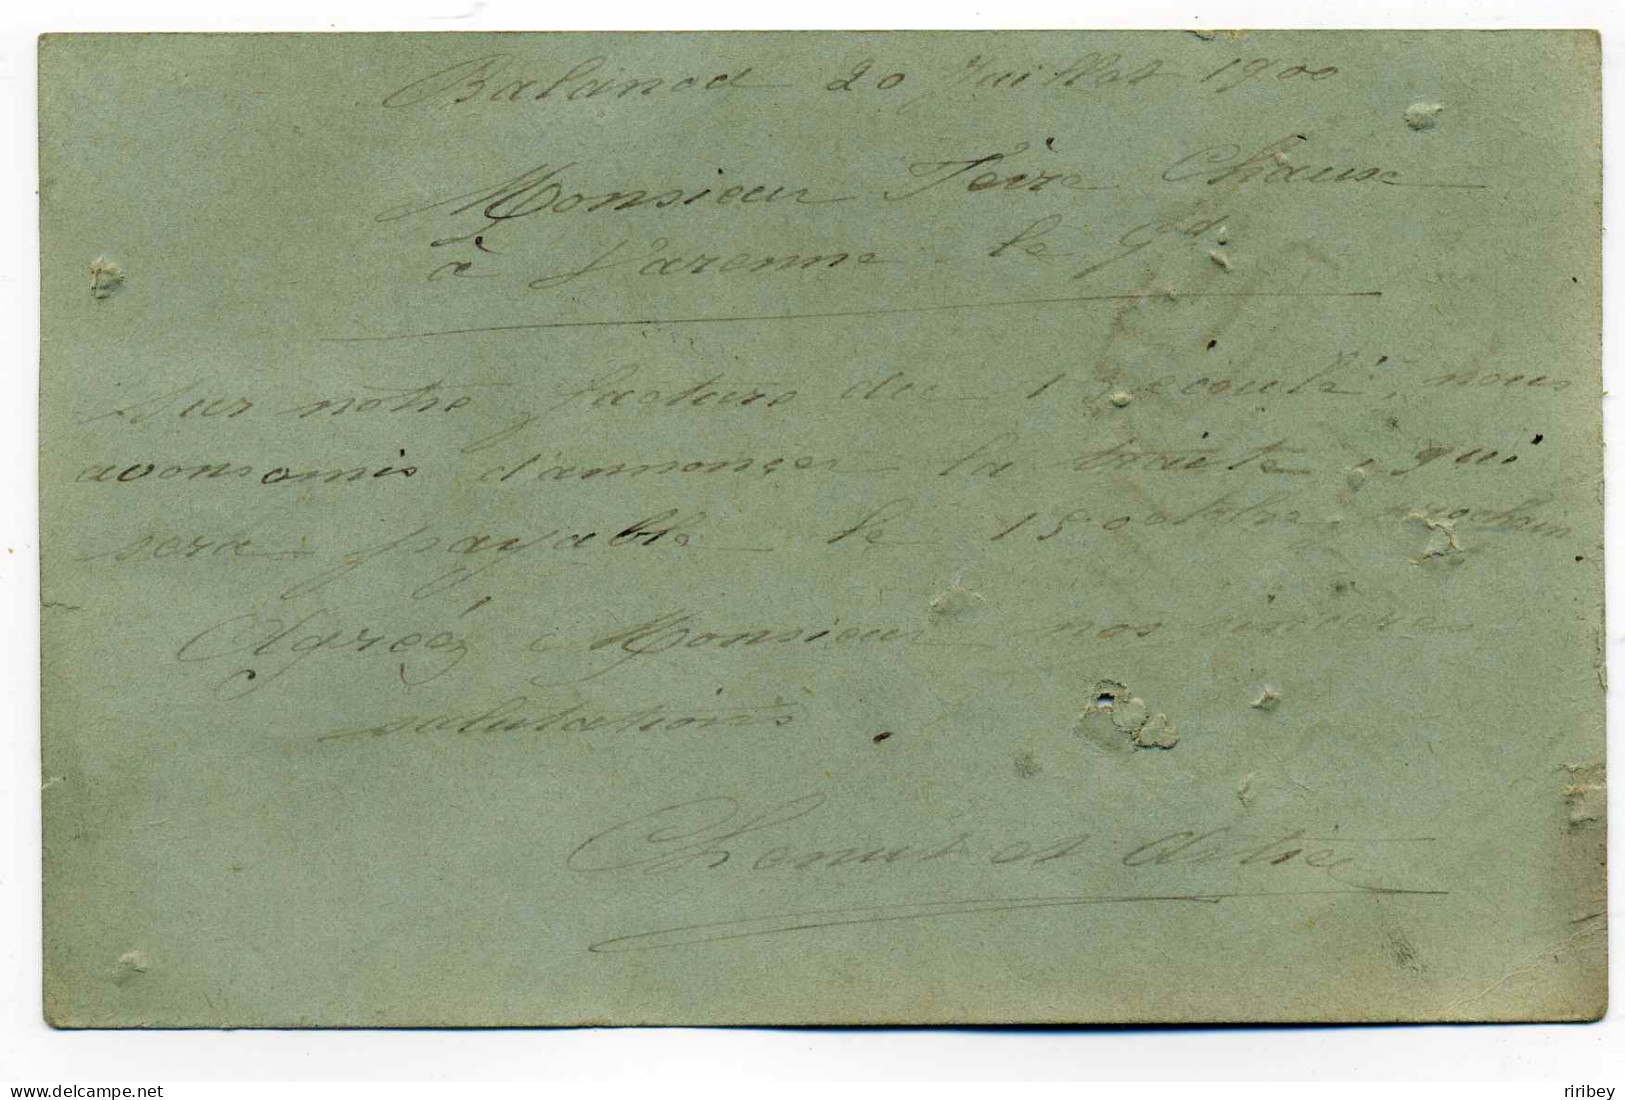 Balanod 20 Juillet 1900
Monsieur Chaux
à Varenne le Gd
Sur notre facture du 1 écoulé, nous
avons omis d'annoncer la traite, qui
sera payable le 15 octbre prochain.
Agréez Monsieur nos sincères
salutations.
et
riribey